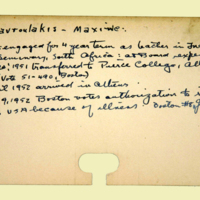 avroulakis - Maxine.
engaged for 4 year term as teacher in In
Seminary, South Africa: at Board expe
1951 transferred to Pierce College, At
Vote 51-490, Boston)
1952 arrived in Athens
9, 1952 Boston votes authorization to
USA because of illness Boston #